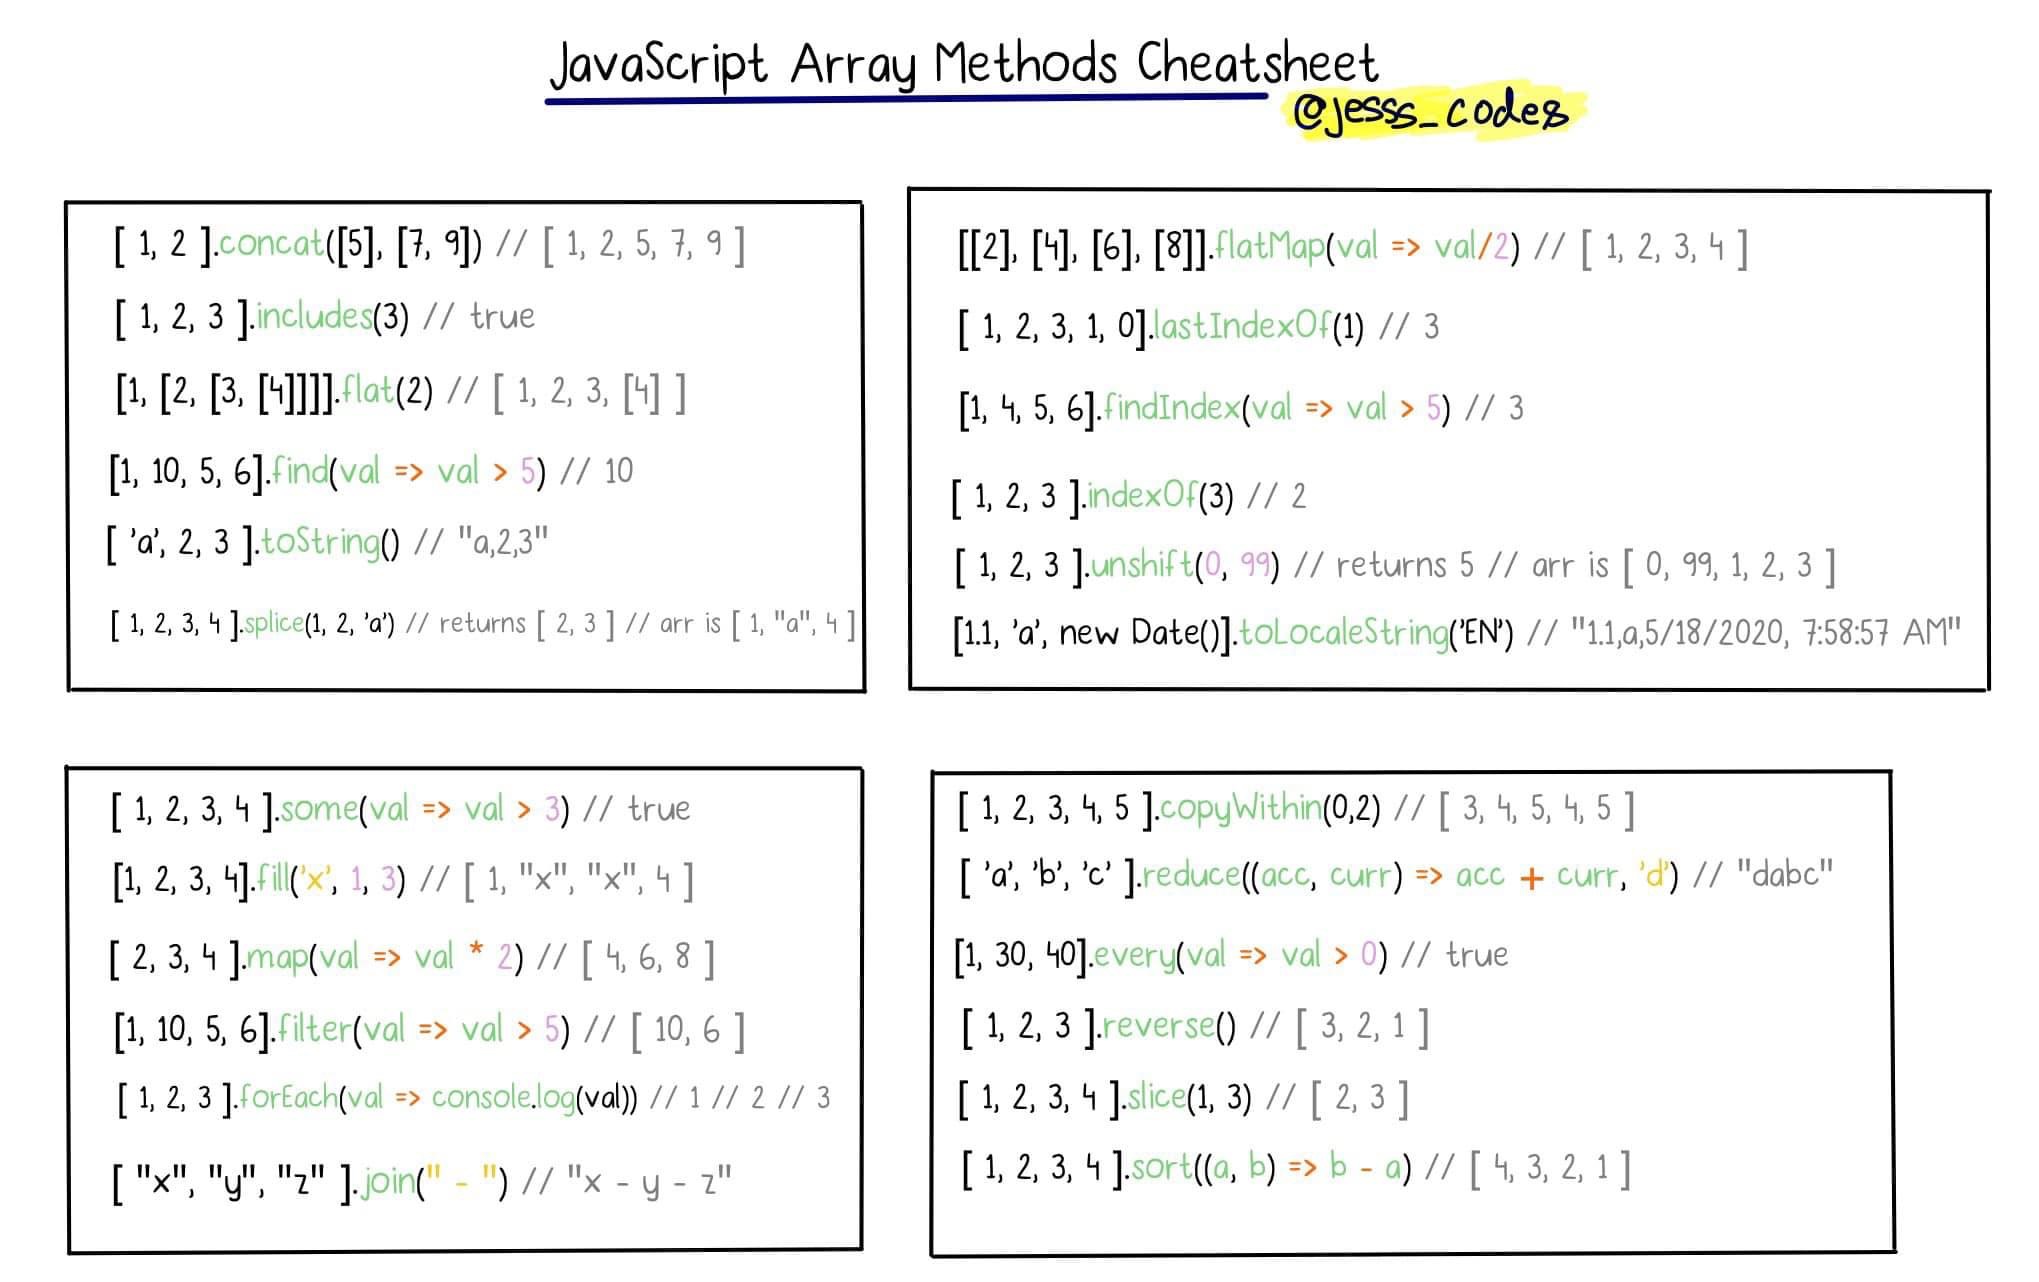 JavaScript Array Methods Cheatsheet
@jesss_codes
[ 1, 2 ].concat([5], [7, 9]) // [ 1, 2, 5, 7, 9 ]
[ 1, 2, 3 ].includes(3) // true
[1, [2, [3, [4]]]].flat(2) // [ 1, 2, 3, [4] ]
[1, 10, 5, 6].find(val => val > 5) // 10
[ 'a', 2, 3 ].toString() // "a,2,3"
[ 1, 2, 3, 4 ].splice(1, 2, 'a') // returns [ 2, 3 ] // arr is [ 1, "a", 4 ]
[[2], [4], [6], [8]].flatMap(val => val/2) // [ 1, 2, 3, 4 ]
[ 1, 2, 3, 1, 0].lastIndexOf(1) // 3
[1, 4, 5, 6].findIndex(val => val > 5) // 3
[ 1, 2, 3 ].indexOf(3) // 2
[ 1, 2, 3 ].unshift(0, 99) // returns 5 // arr is [ 0, 99, 1, 2, 3 ]
[1.1, 'a', new Date()].toLocaleString('EN') // "1.1,a,5/18/2020, 7:58:57 AM"
[ 1, 2, 3, 4 ].some(val => val > 3) // true
[1, 2, 3, 4].fill('x', 1, 3) // [ 1, "x", "x", 4 ]
[ 2, 3, 4 ].map(val => val * 2) // [ 4, 6, 8 ]
[1, 10, 5, 6].filter(val => val > 5) // [ 10, 6 ]
[ 1, 2, 3 ].forEach(val => console.log(val)) // 1 // 2 // 3
[ "x", "y", "z" ].join(" - ") // "x - y - z"
[ 1, 2, 3, 4, 5 ].copyWithin(0,2) // [ 3, 4, 5, 4, 5 ]
[ 'a', 'b', 'c' ].reduce((acc, curr) => acc + curr, 'd') // "dabc"
[1, 30, 40].every(val => val > 0) // true
[ 1, 2, 3 ].reverse() // [ 3, 2, 1 ]
[ 1, 2, 3, 4 ].slice(1, 3) // [ 2, 3 ]
[ 1, 2, 3, 4 ].sort((a, b) => b - a) // [ 4, 3, 2, 1 ]